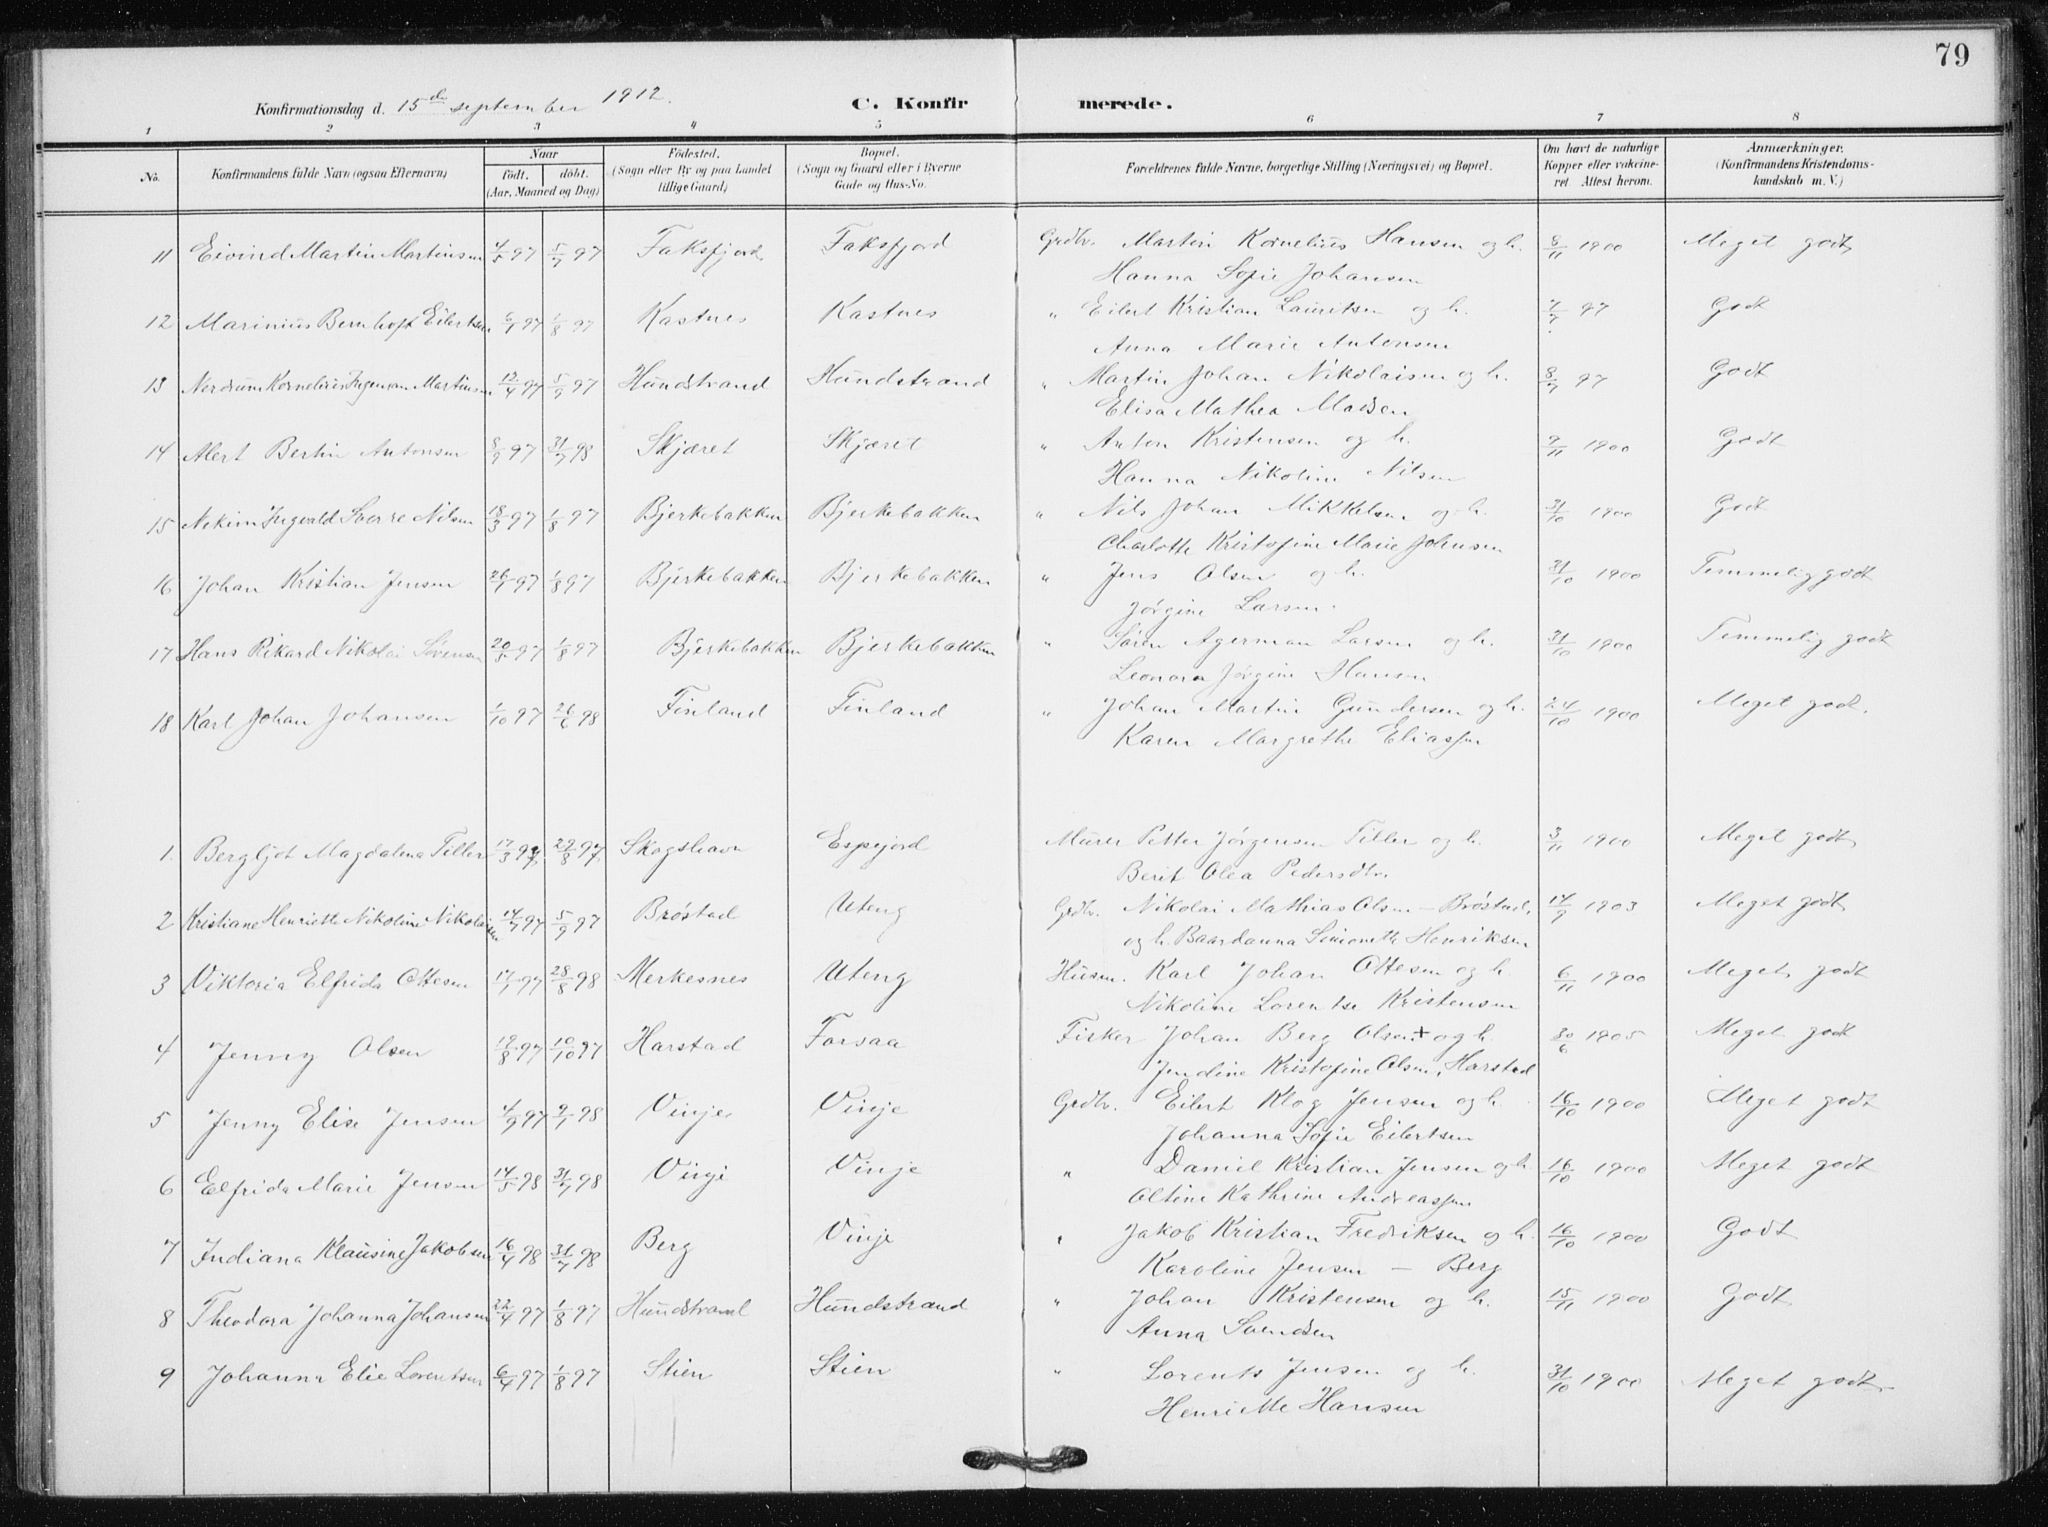 79
Konfirmationsdag d. 15de september 1912. C. Konfirmerede.
1 2 3 4 5 6 7 8
No. Konfirmandens fulde Navn (ogsaa Efternavn) Naar født. døbt. (Aar, Maaned og Dag) Fødested. (Sogn eller By og paa Landet tillige Gaard) Bopæl. (Sogn og Gaard eller i Byerne Gade og Hus-No. Forældrenes fulde Navne, borgerlige Stilling (Næringsvei) og Bopæl. Om havt de naturlige Kopper eller vakcineret. Attest herom. Anmærkninger. (Konfirmandens Kristendomskundskab m. V.)
11 Eivind Martin Martinsen 4/5 97 5/7 97 Faksfjord Faksfjord Grdbr. Martin Kornelius Hansen og h. 8/11 1900 Meget godt
Hanna Sofie Johansen
12 Marinius Bernhoft Eilertsen 6/7 97 1/8 97 Kastnes Kastnes " Eilert Kristian Lauritsen og h. 7/7 97 Godt
Anna Marie Antonsen
13 Kornelius Martinsen 12/4 97 5/9 97 Hundstrand Hundstrand " Martin Johan Nikolaisen og h. 8/7 97 Godt
Elisa Mathea Madsen
14 Alert Bertin Antonsen 8/9 97 31/7 98 Skjæret Skjæret " Anton Kristensen og h. 9/11 1900 Godt
Hanna Nikoline Nilsen
15 Ingvald Sverre Nilsen 18/3 97 1/8 97 Bjerkebakken Bjerkebakken " Nils Johan Mikkelsen og h. 31/10 1900 Godt
Charlotte Kristofine Marie Johnsen
16 Johan Kristian Jensen 26/7 97 1/8 97 Bjerkebakken Bjerkebakken " Jens Olsen og h. 31/10 1900 Temmelig godt
Jørgine Larsen.
17 Hans Rikard Nikolai Sørensen 20/5 97 1/8 97 Bjerkebakken Bjerkebakken " Søren Agerman Larsen og h. 31/10 1900 Temmelig godt
Leonora Jørgine Hansen
18 Karl Johan Johansen 1/10 97 26/6 98 Finland Finland " Johan Martin Gundersen og h. 24/10 1900 Meget godt.
Karen Margrethe Eliassen
1. Bergljot Magdalena Tiller 17/3 97 29/8 97 Skogshavn Espejord Murer Petter Jørgensen Tiller og h. 3/11 1900 Meget godt
Berit Olea Pedersdtr.
2 Kristiane Henriette Nikoline Nikolaisen 14/7 97 5/9 97 Brøstad Uteng Grdbr. Nikolai Mathias Olsen – Brøstad, 14/9 1903 Meget godt
og h. Baardanna Simonette Henriksen
3 Viktoria Elfrida Ottesen 17/7 97 28/8 98 Merkesnes Uteng Husm. Karl Johan Ottesen og h. 6/11 1900 Meget godt
Nikoline Lorentse Kristensen
4 Jenny Olsen 19/8 97 10/10 97 Harstad Forsaa Fisker Johan Berg Olsen + og h. 30/6 1905 Meget godt
Jendine Kristofine Olsen, Harstad
5 Jenny Elise Jensen 4/9 97 9/7 98 Vinje Vinje Grdbr. Eilert Klog Jensen og h. 16/10 1900 Meget godt
Johanna Sofie Eilertsen
6 Elfrida Marie Jensen 14/5 98 31/7 98 Vinje Vinje " Daniel Kristian Jensen og h. 16/10 1900 Meget godt
Oltine Kathrine Andreassen
7 Indiana Klausine Jakobsen 16/4 98 31/7 98 Berg Vinje " Jakob Kristian Fredriksen og h. 16/10 1900 Godt
Karoline Jensen – Berg
8 Theodora Johanna Johansen 22/4 97 1/8 97 Hundstrand Hundstrand " Johan Kristensen og h. 15/11 1900 Godt
Anna Svendsen
9 Johanna Elie Lorentsen 6/4 97 1/8 97 Stien Stien " Lorents Jensen og h. 31/10 1900 Meget godt.
Henriette Hansen